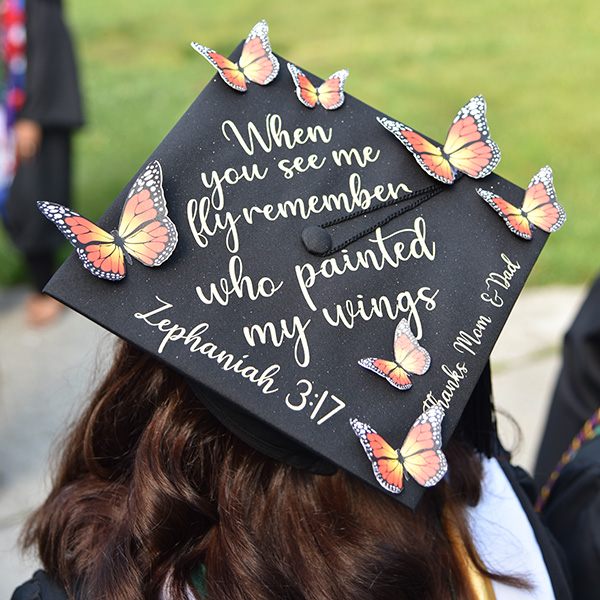 When
you see me
fly remember
who painted
my wings
Zephaniah 3:17
Thanks Mom & Dad